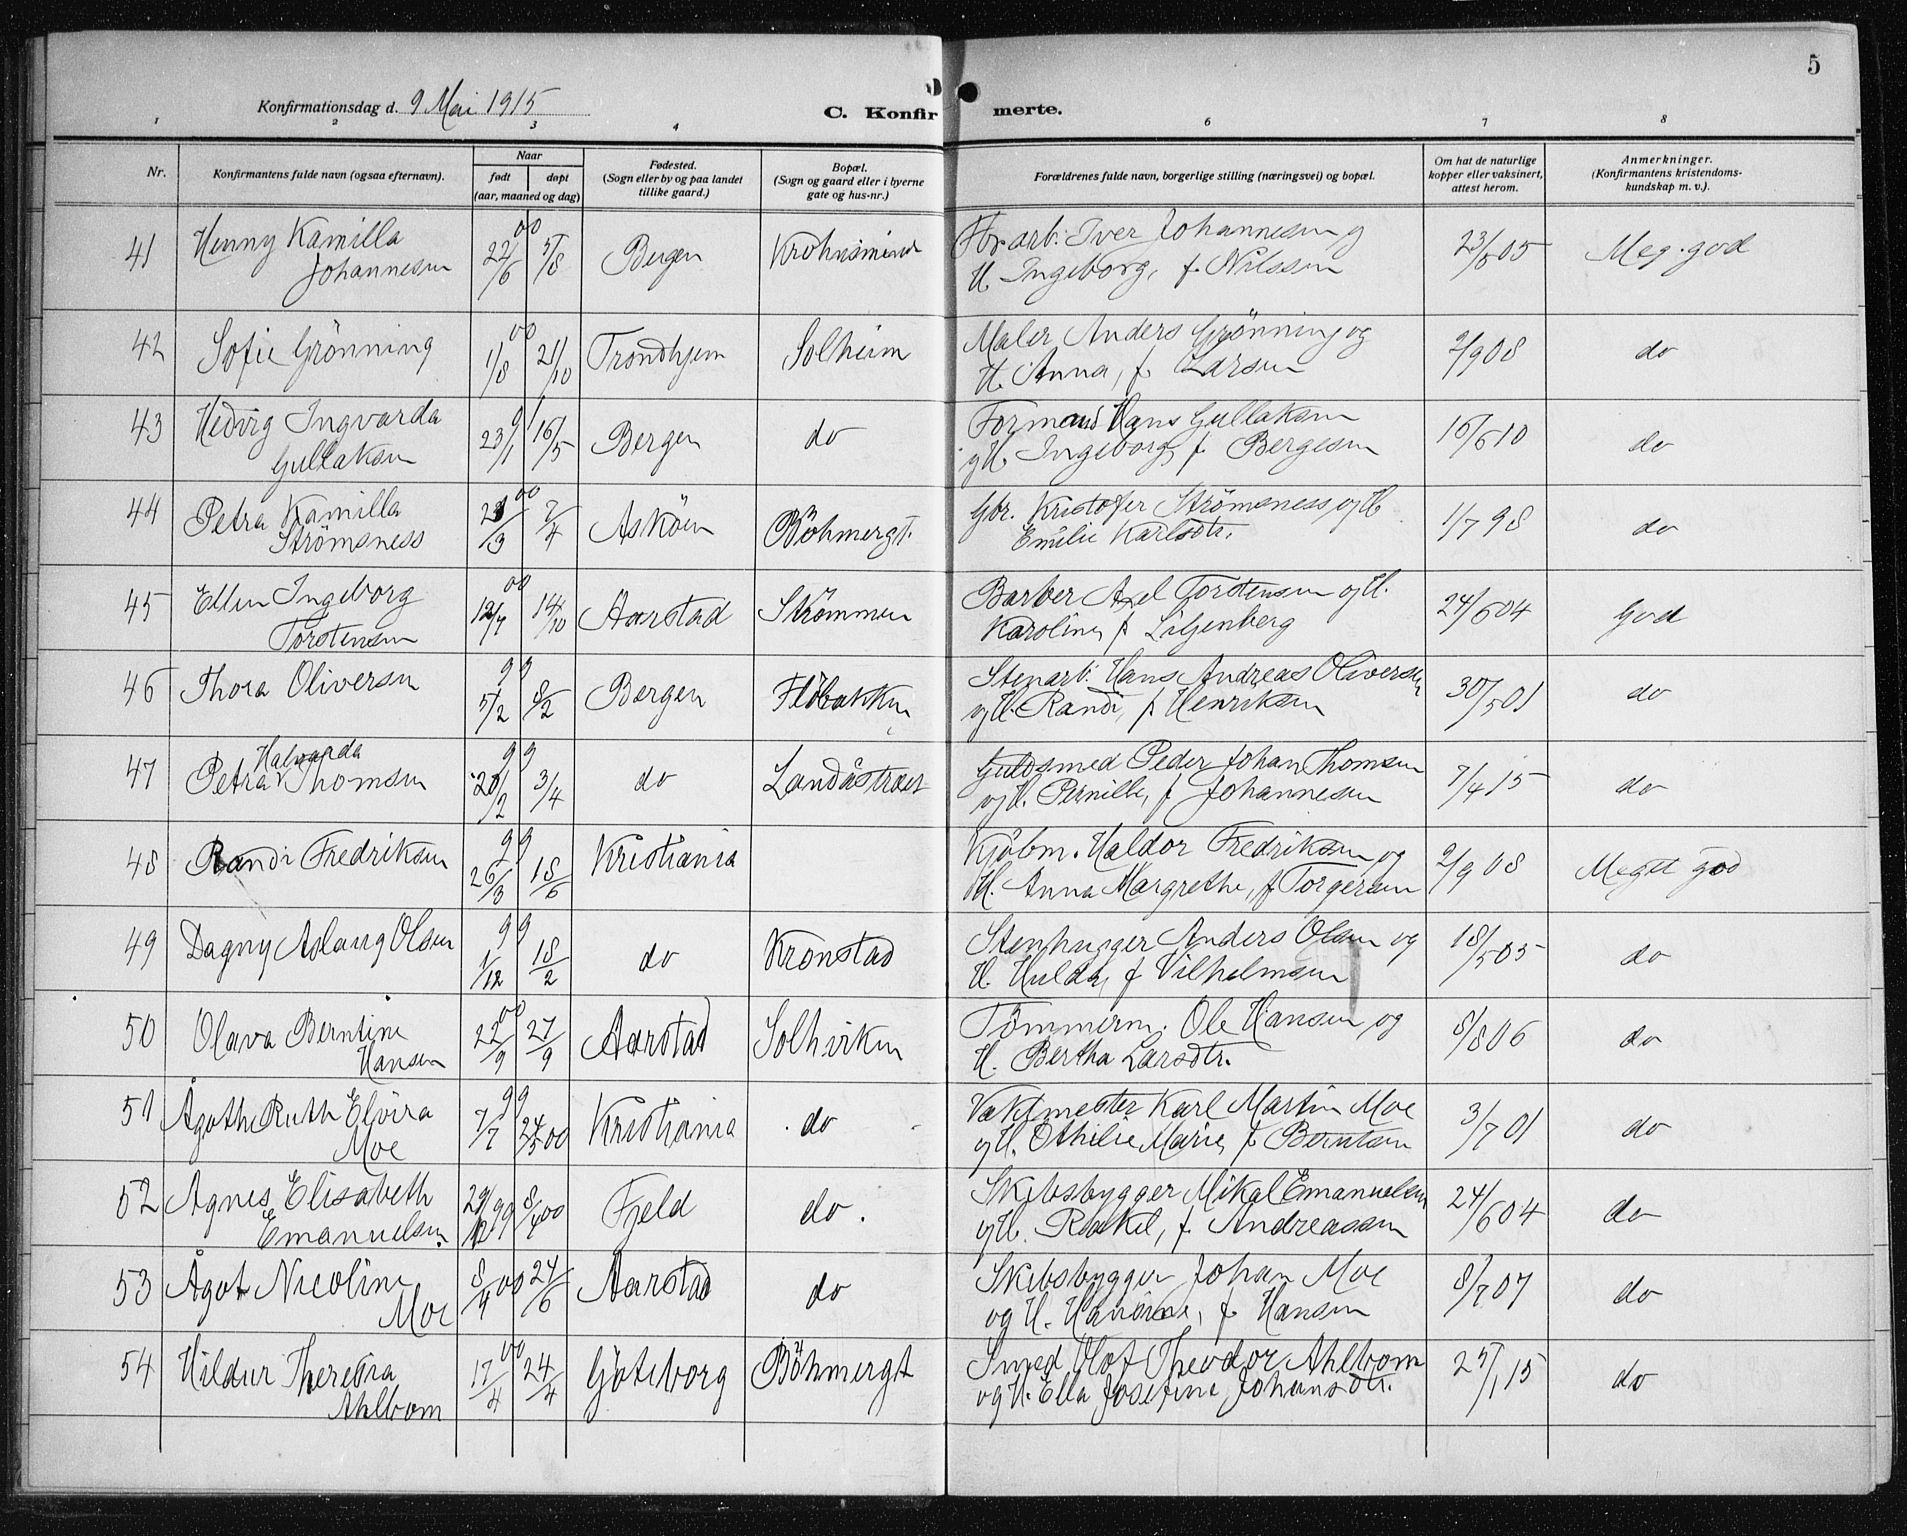 5
Konfirmationsdag d. 9 Mai 1915
C. Konfir merte.
1 2 3 4 6 7 8
Nr.
Konfirmantens fulde navn (ogsaa efternavn).
Naar
født døpt
(aar, maaned og dag)
Fødested.
(Sogn eller by og paa landet
tillike gaard.)
Bopæl.
(Sogn og gaard eller i byerne
gate og hus-nr.)
Forældrenes fulde navn, borgerlige stilling (næringsvei) og bopæl.
Om hat de naturlige
kopper eller vaksinert,
attest herom.
Anmerkninger.
(Konfirmantens kristendoms-
kundskap m. v.).
41 Henny Kamilla 00 22/6 5/8 Bergen Iver Johannesen og 23/5 05 Meg. god
Johannesen H. Ingeborg, f. Nilssen
42 Sofie Grönning 00 1/8 21/10 Trondhjem Solheim Maler Anders Grönning og 2/9 08 do
H. Anna, f. Larsen
43 Hedvig Ingvarda 01 23/1 16/5 Bergen do Formand Hans Gullaksen 16/6 10 do
Gullaksen og H. Ingeborg, f. Bergesen
44 Petra Kamilla 00 /3 7/4 Asköen Böhmergt. Gbr. Kristofer Strömsness og H. 1/7 98 do
Strömsness Emilie Karlsdtr.
45 Ellen Ingeborg 00 12/7 14/10 Aarstad Strömmen Barber Axel Torstensen og H. 24/6 04 God
Torstensen Karoline, f. Liljenberg
46 Thora Oliversen 99 5/2 8/2 Bergen Flöbakken Stenarb. Hans Andreas Oliversen 30/5 01 do
og H. Randi, f. Henriksen
47 Petra Halvarda Thomsen 99 20/2 3/4 do Landåstræet Guldsmed Peder Johan Thomsen 7/4 15 do
og H. Pernille, f. Johannesen
48 Randi Fredriksen 99 26/3 18/6 Kristiania Kjöbm. Haldor Fredriksen og 2/9 08 Meget god
H. Anna Margrethe, f. Torgersen
49 Dagny Aslaug Olsen 99 1/12 18/2 do Kronstad Stenhugger Anders Olsen og 18/5 05 do
H. Hulda, f. Vilhelmsen
50 Olava Berntine 00 22/9 27/9 Aarstad Solhviken Tömmerm. Ole Hansen og 8/8 06 do
Hansen H. Bertha Larsdtr.
51 Ågoth Ruth Elvira 99 7/7 24/5 00 Kristiania do Vaktmester Karl Martin Moe 3/7 01 do
Moe og H. Othilie Marie, f. Berntsen
52 Agnes Elisabeth 29/12 99 8/4 00 Fjeld do. Skibsbygger Mikal Emanuelsen 24/6 04 do
Emanuelsen. og H. Rakel, f. Andreassen
53 Ågot Nicoline 8/4 00 24/6 Aarstad do Skibsbygger Johan Moe 8/7 07 do
Moe og H. f. Hansen
54 Hildur 00 17/4 24/4 Göteborg Böhmergt Smed Olof Theodor Ahlbom 25/1 15 do
Ahlbom og H. Ella Josefine Johansdtr.